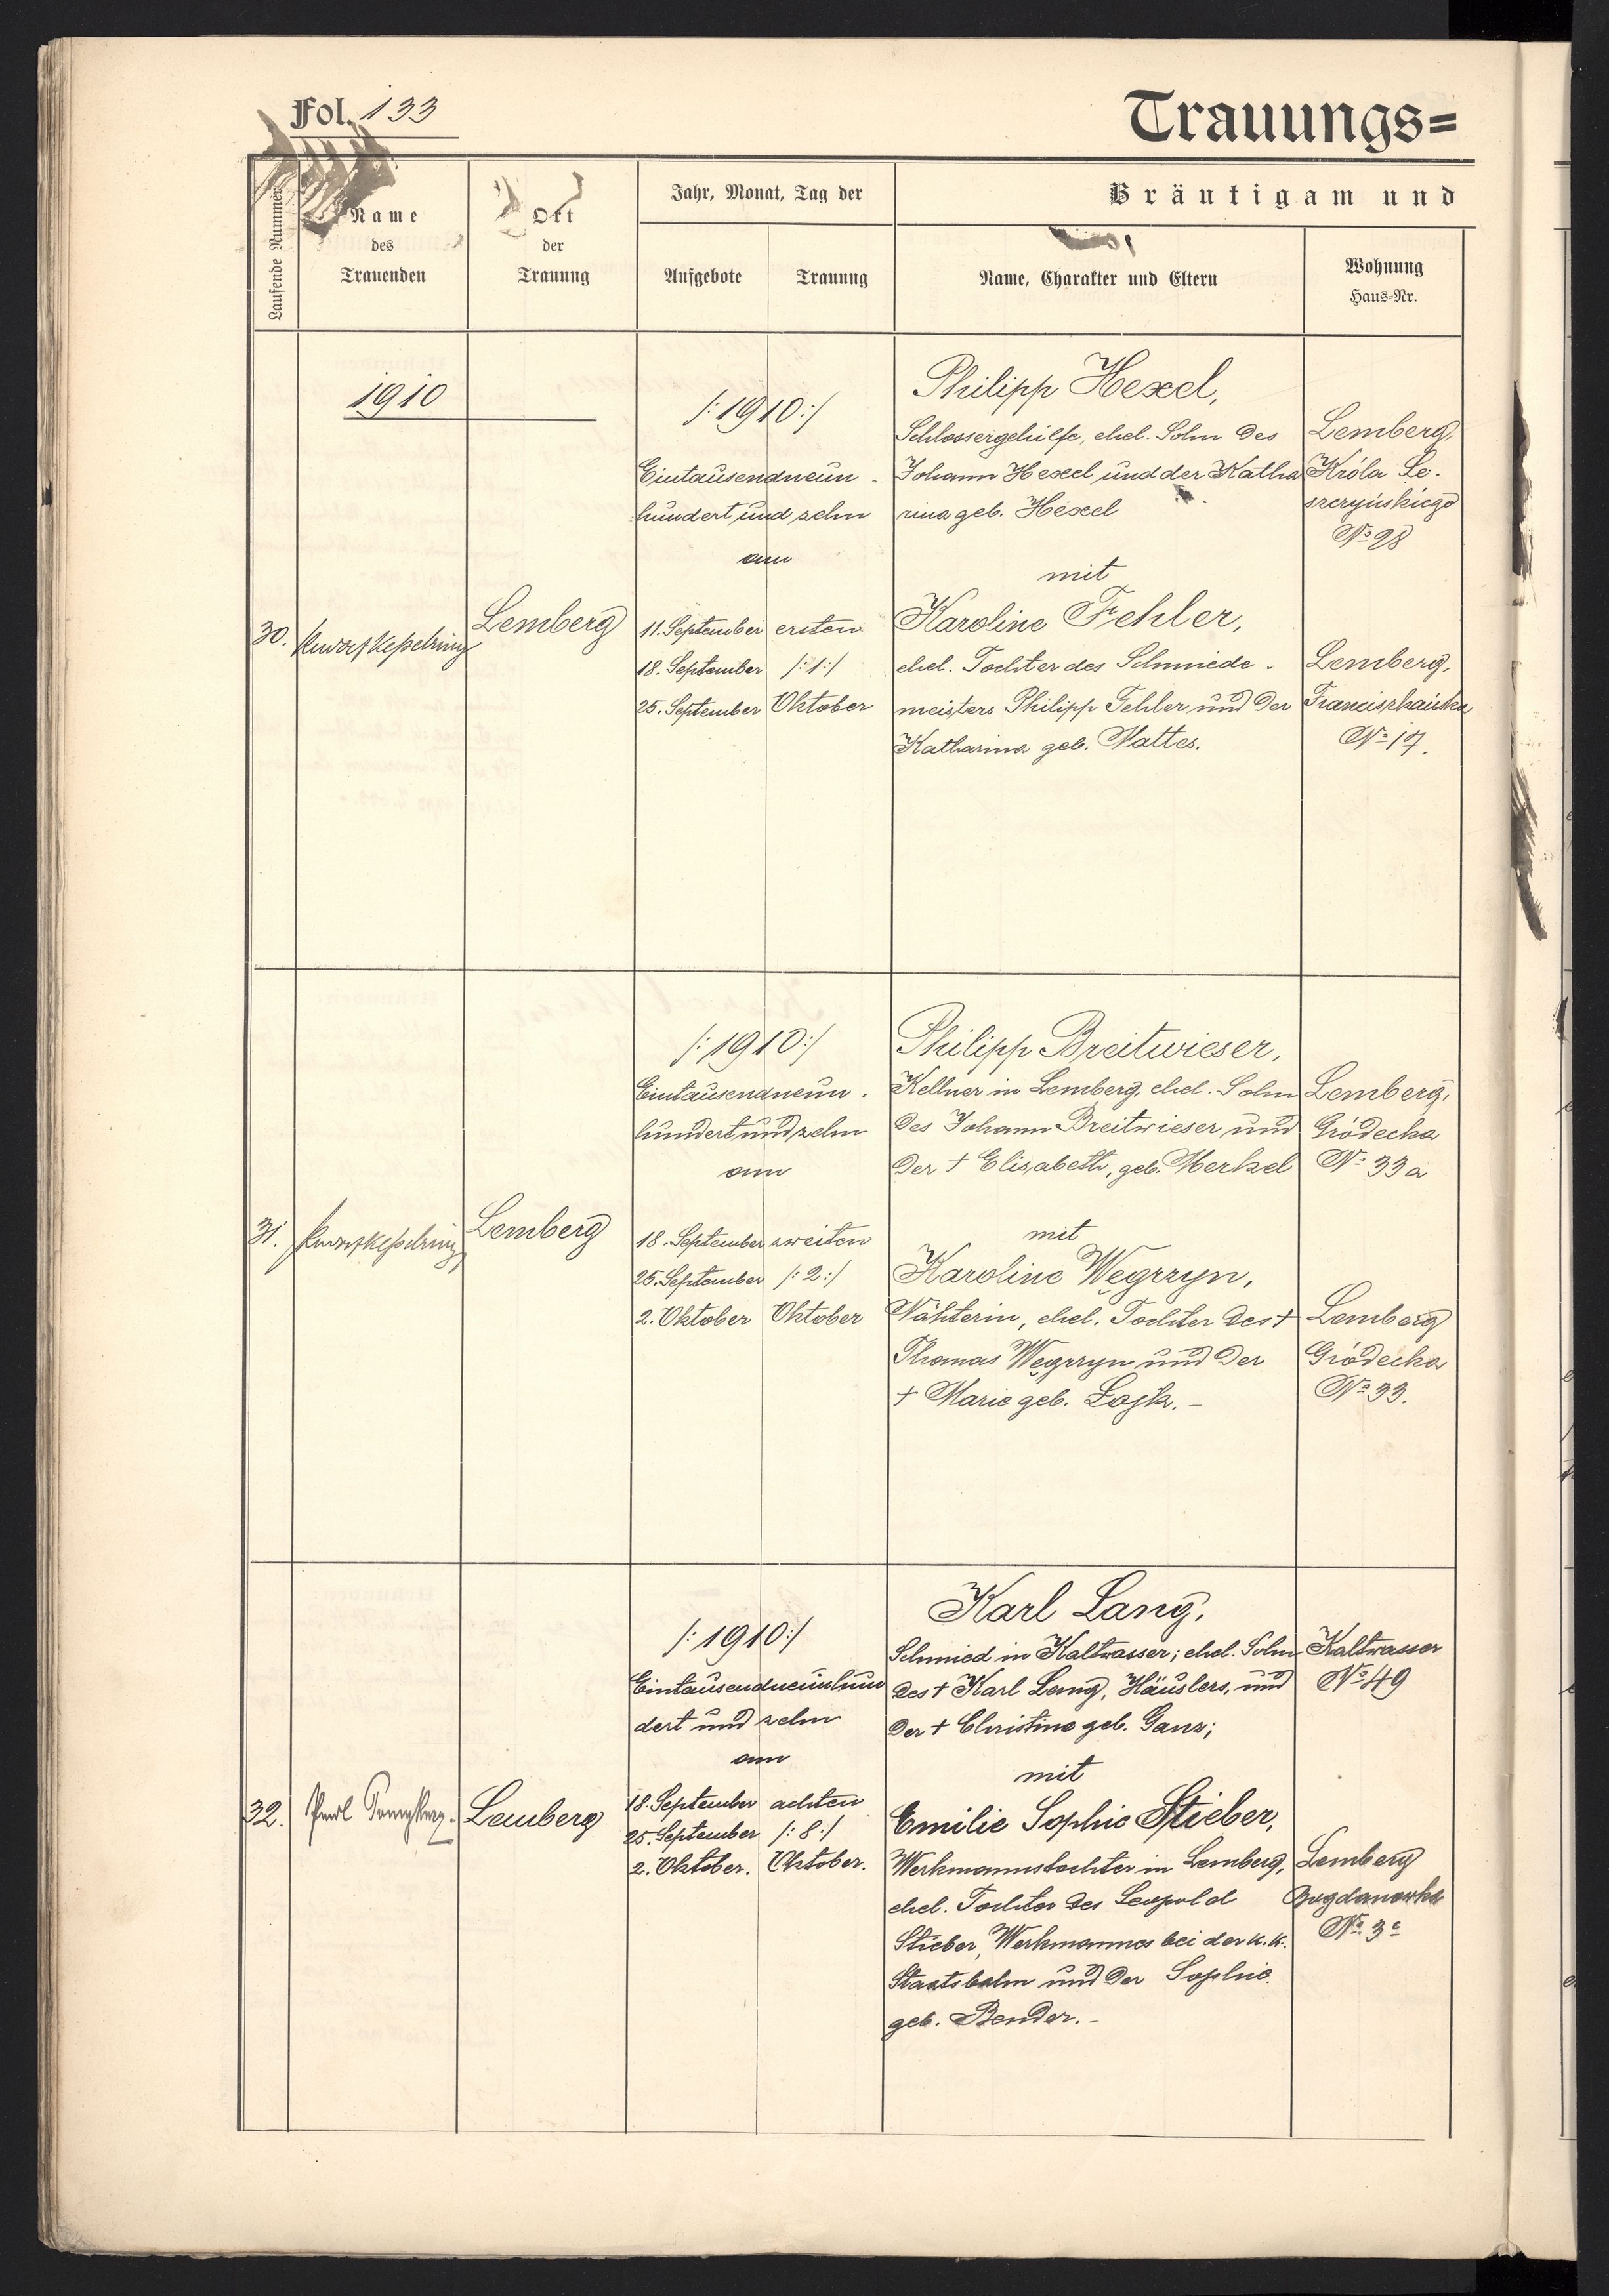 Fol. 133
Trauungs=
Laufende Nummer
Name
des
Trauenden
Ort
der
Trauung
Jahr, Monat, Tag der
Aufgebote
Trauung
Bräutigam und
Name, Charakter und Eltern
Wohnung
Haus=Nr.
1910
30.
Lemberg
/:1910:/
Eintausendneun-
hundert und zehn
am
11. September ersten
18. September /:1:/
25. September Oktober
Philipp Hexel,
Schlossergehilfe, ehel. Sohn des
Johann Hexel und der Katha
rina geb. Hexel
mit
Karoline Fehler,
ehel. Tochter des Schmiede-
meisters Philipp Fehler und der
Katharina geb. Mattes.
Lemberg,
Króla Le-
szczyńskiego
No 28
Lemberg,
Franciszkańska
No 17.
31.
Lemberg
/:1910:/
Eintausendneun-
hundert und zehn
am
18. September zweiten
25. September /:2:/
2. Oktober Oktober
Philipp Breitwieser,
Kellner in Lemberg, ehel. Sohn
des Johann Breitwieser und
der † Elisabeth, geb. Merkel
mit
Karoline Węgrzyn,
Nähterin, ehel. Tochter des †
Thomas Węgrzyn und der
† Marie geb. Lojk. -
Lemberg,
Gródecka
No 33 a
Lemberg
Gródecka
No 33.
32.
Lemberg
/:1910:/
Eintausendneunhun
dert und zehn
am
18. September achten
25. September /:8:/
2. Oktober. Oktober.
Karl Lang,
Schmied in Kaltwasser; ehel. Sohn
des † Karl Lang, Häuslers, und
der † Christine geb. Ganz;
mit
Emilie Sophie Stieber,
Werkmannstochter in Lemberg,
ehel. Tochter des Leopold
Stieber, Werkmannes bei der k.k.
Staatsbahn und der Sophie
geb. Bender. -
Kaltwasser
No 49
Lemberg
Bogdanowka
No 3c